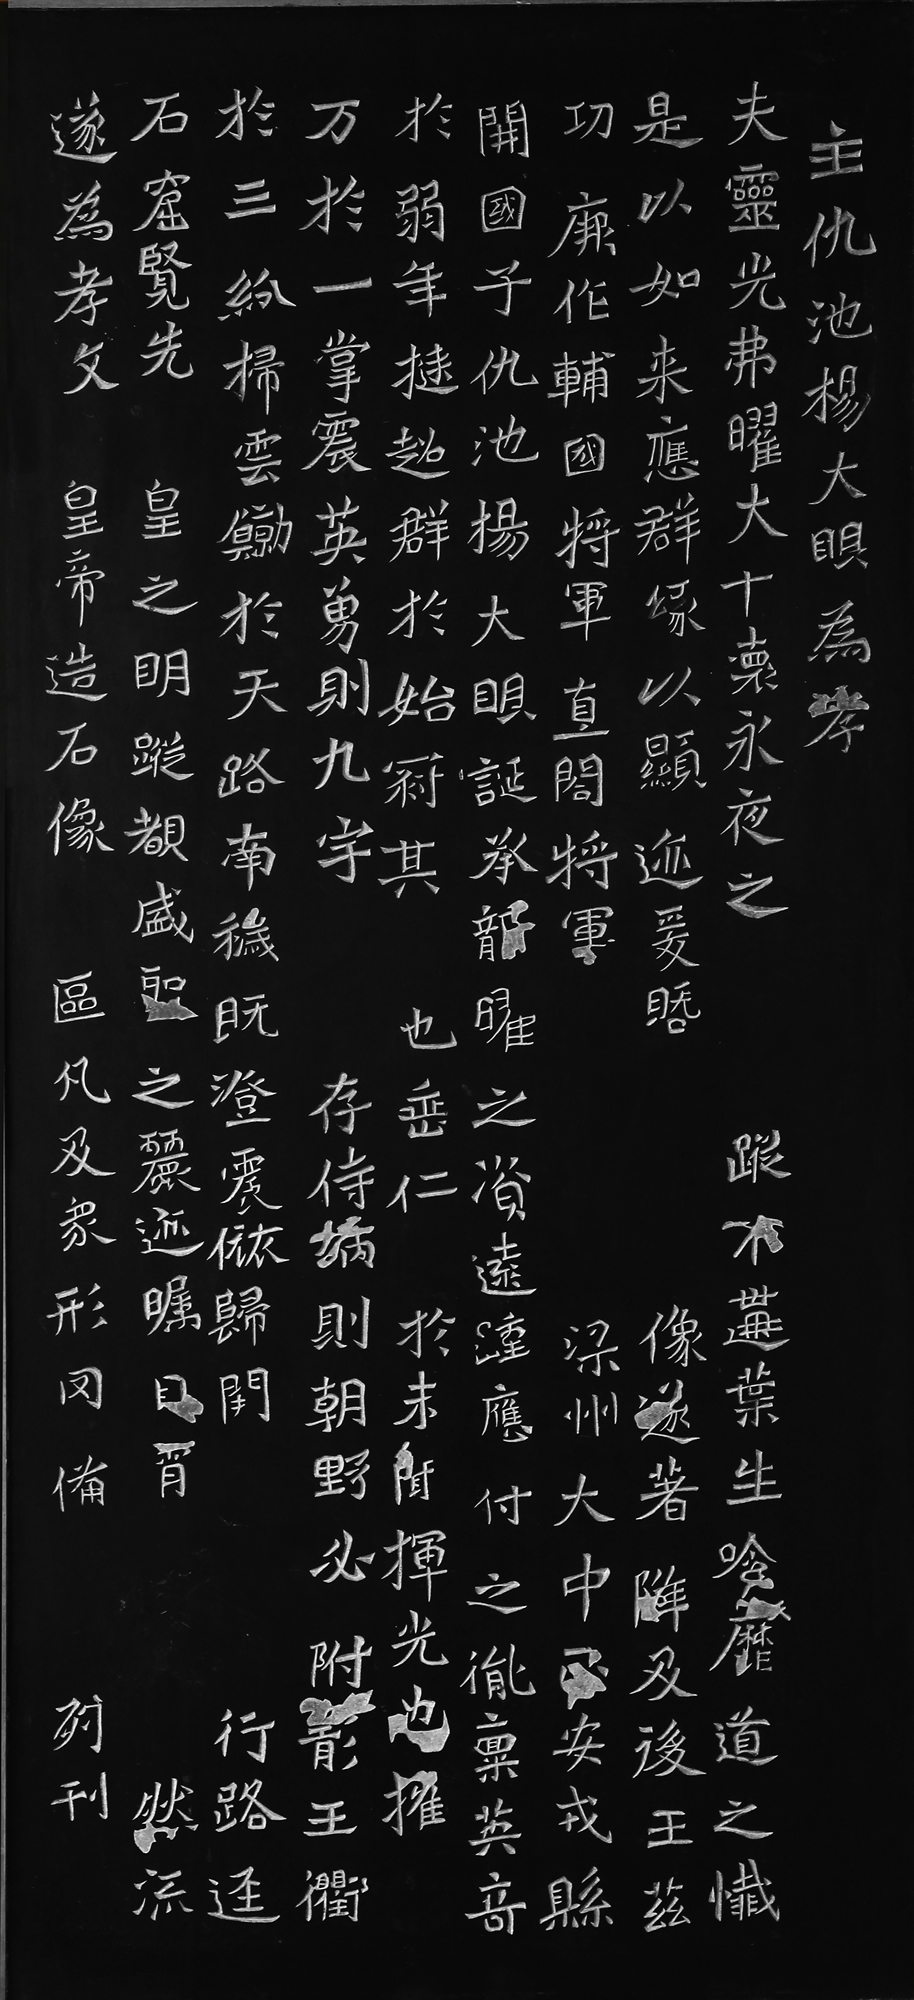 主仇池楊大眼為孝
夫靈光弗曜大千懷永夜之蹤不遘葉生唅靡道之懺
是以如来應群緣以顯迹爰曁像遂著降及後王茲
功厥作輔國將軍直閤將軍梁州大中正安戎縣
開國子仇池楊大眼誕承龍曜之資遠踵應付之胤稟英奇
於弱年挺超群於始冠其也垂仁於未聞揮光也摧
万於一掌震英勇則九宇存侍納則朝野必附王衢
於三紛掃雲鯨於天路南穢既澄震旅歸闕行路逕
石窟覽先皇之明蹤覩盛聖之麗迹矚目霄然流
遂為孝文皇帝造石像區凡及眾形罔備列刊